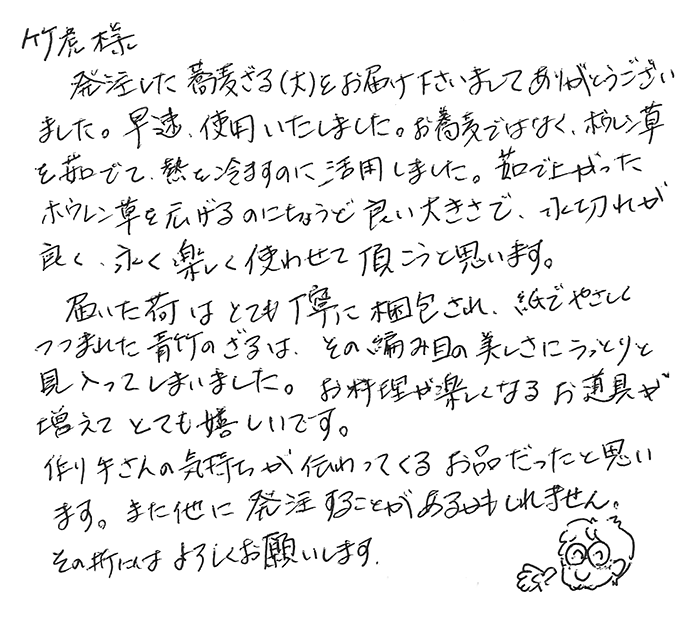 竹虎様
発注した蕎麦ざる(大)をお届け下さいましてありがとうござい
ました。早速、使用いたしました。お蕎麦ではなく、ホウレン草
を茹でて、熱を冷ますのに活用しました。茹で上がった
ホウレン草を広げるのにちょうど良い大きさで、水切れが
良く、永く楽しく使わせて頂こうと思います。
届いた荷はとても丁寧に梱包され、紙でやさしく
つつまれた青竹のざるは、その編み目の美しさにうっとりと
見入ってしまいました。お料理が楽しくなるお道具が
増えてとても嬉しいです。
作り手さんの気持ちが伝わってくるお品だったと思い
ます。また他に発注することがあるかもしれません。
その折にはよろしくお願いします.